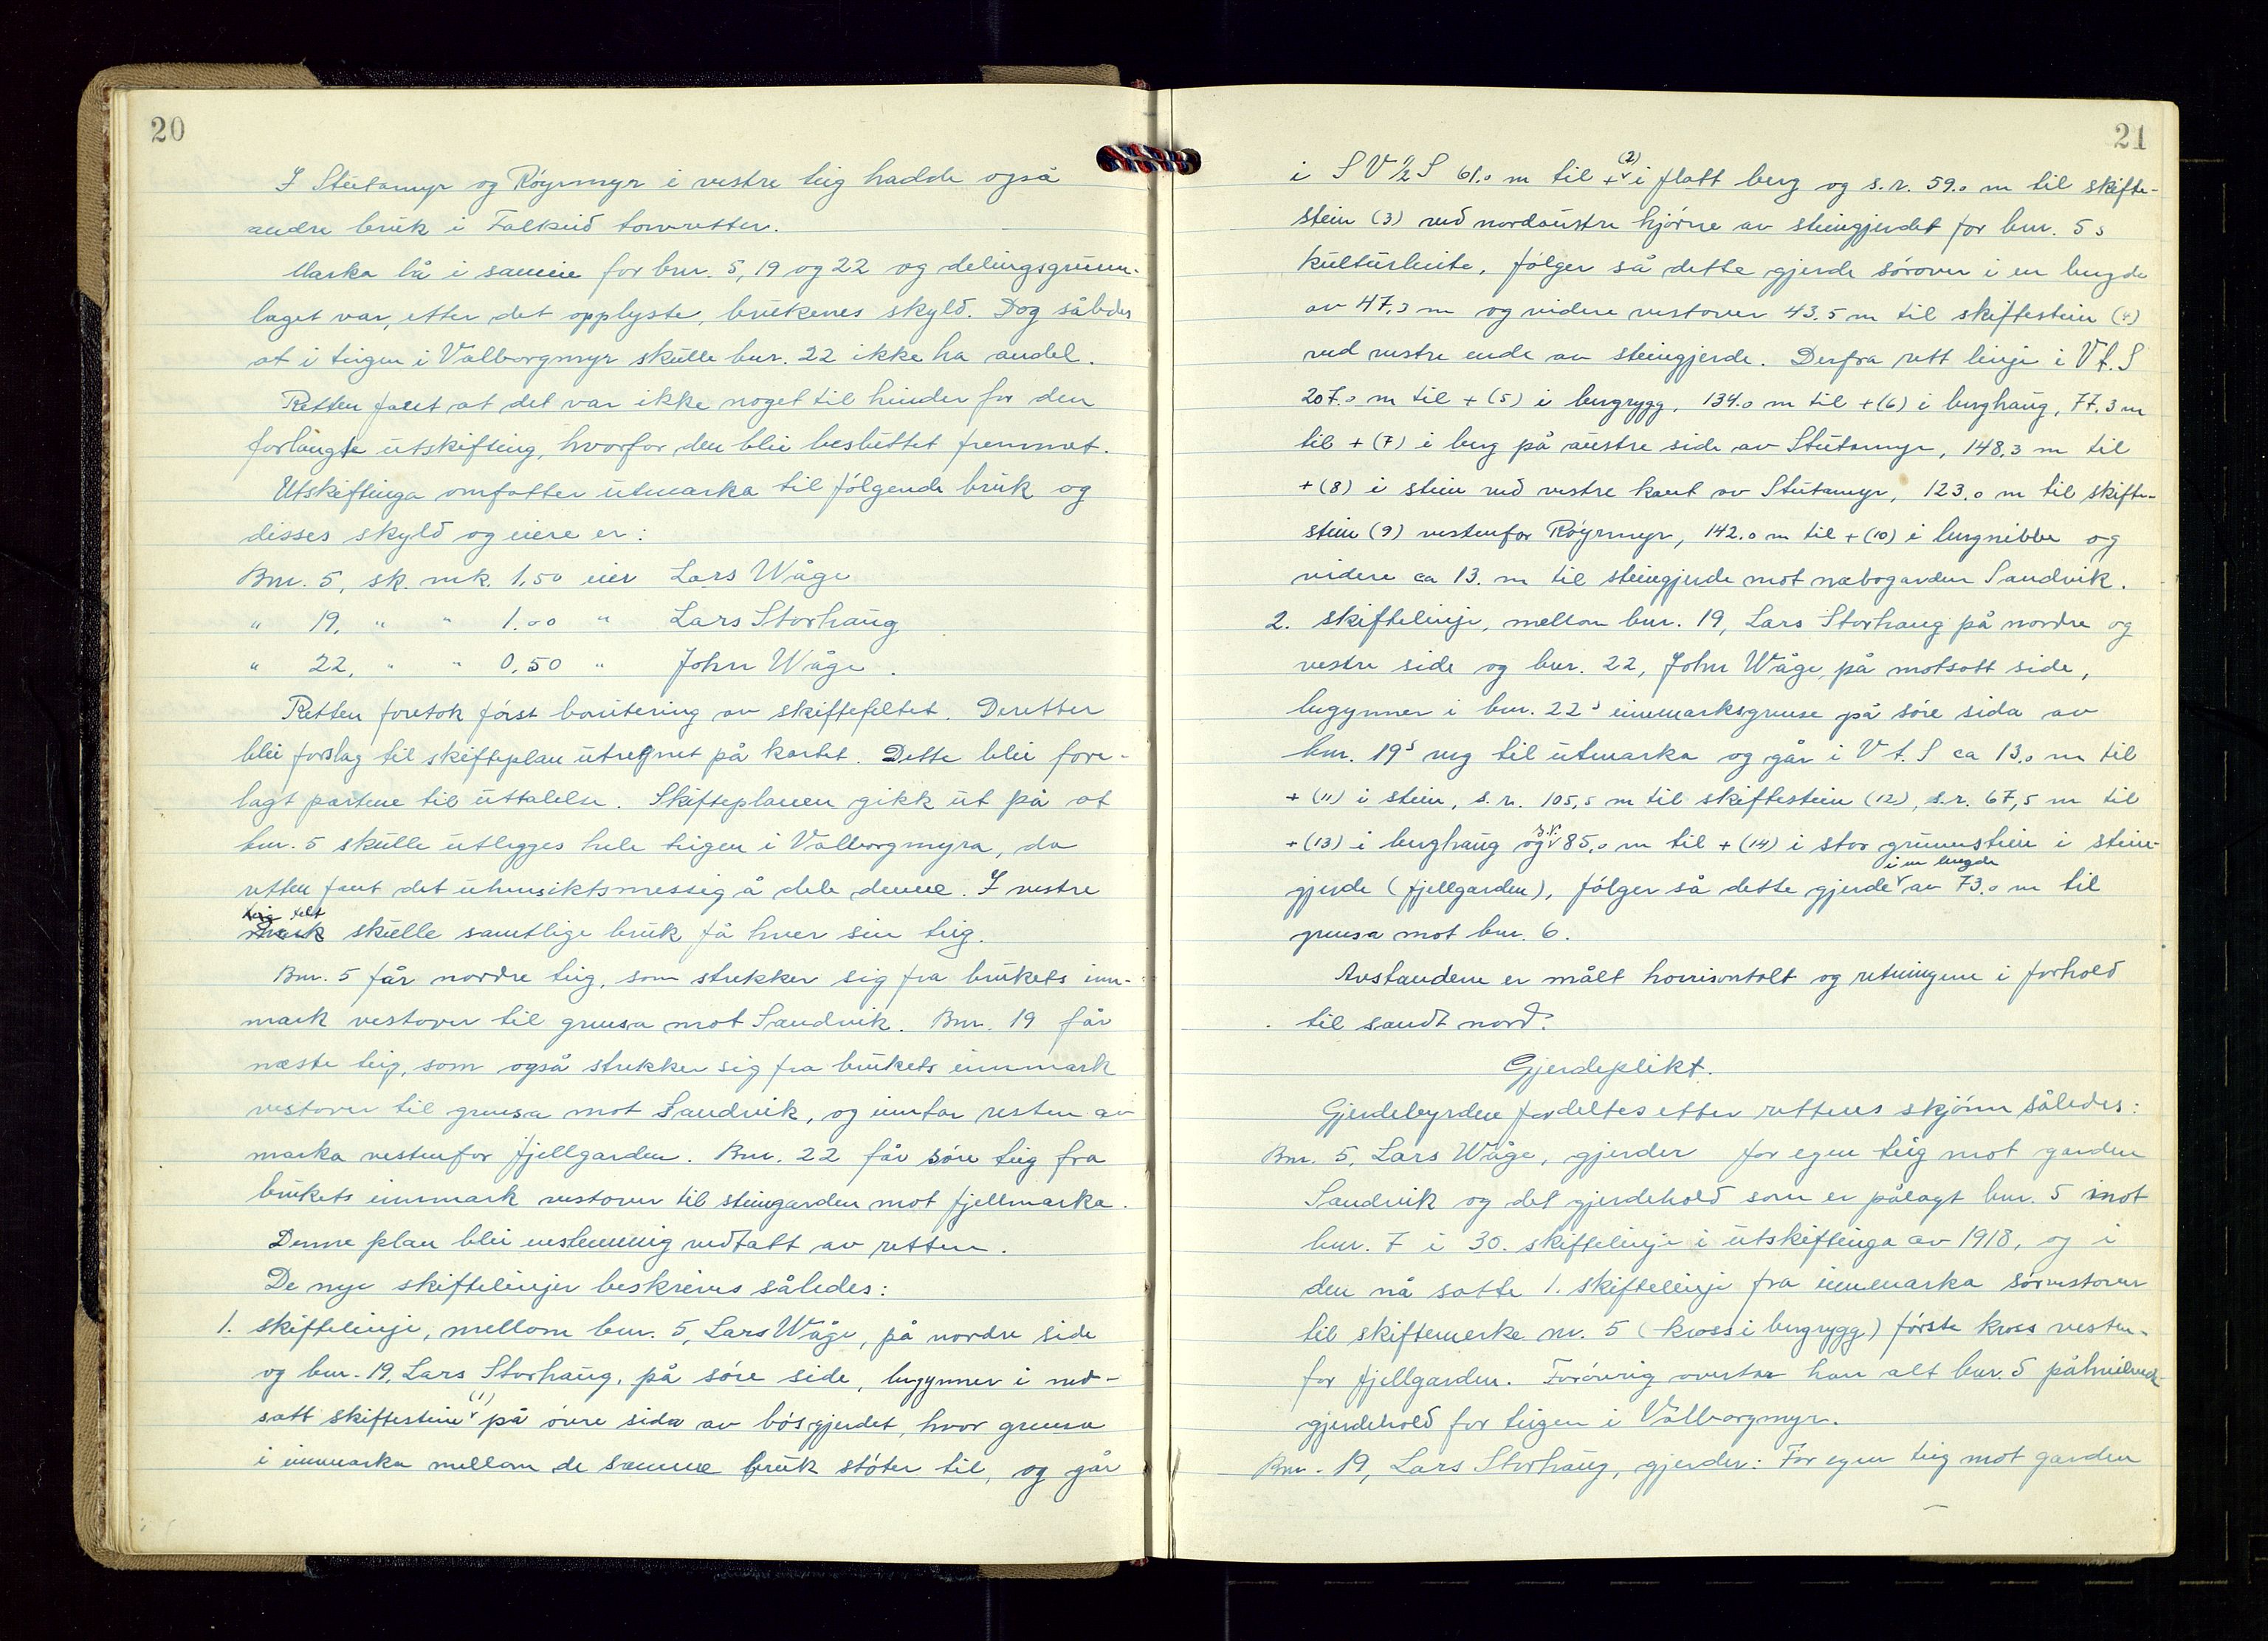 20
I Stutamyr og Røyrmyr i vestre teig hadde også
andre bruk i Falkeid torvretter.
Marka lå i sameie for bnr. 5, 19 og 22 og delingsgrunn-
laget var, etter det opplyste, brukenes skyld. Dog således
at i teigen i Valborgmyr skulle bnr. 22 ikke ha andel.
Retten fant at det var ikke noget til hinder for den
forlangte utskifting, hvorfor den blei besluttet fremmet.
Utskiftinga omfatter utmarka til følgende bruk og
disses skyld og eiere er:
Bnr. 5, sk. mk. 1,50 eier Lars Wåge
" 19, " " 1.00 " Lars Storhaug
" 22, " " 0,50 " John Wåge.
Retten foretok først bonitering av skiftefeltet. Deretter
blei forslag til skifteplan utregnet på kartet. Dette blei fore-
lagt partene til uttalelse. Skifteplanen gikk ut på at
bnr. 5 skulle utlegges hele teigen i Valborgmyra, da
retten fant det uhensiktsmessig å dele denne. I vestre
teig felt
mark skulle samtlige bruk få hver sin teig.
Bnr. 5 får nordre teig, som strekker sig fra brukets inn-
mark vestover til grensa mot Sandvik. Bnr. 19 får
næste teig, som også strekker sig fra brukets innmark
vestover til grensa mot Sandvik, og inntar resten av
marka vestenfor fjellgarden. Bnr. 22 får søre teig fra
brukets innmark vestover til steingarden mot fjellmarka.
Denne plan blei enstemmig vedtatt av retten.
De nye skiftelinjer beskrives således:
1. skiftelinje, mellom bnr. 5, Lars Wåge, på nordre side
og bnr. 19, Lars Storhaug, på søre side, begynner i ned-
satt skiftestein (1) på øvre sida av bøsgjerdet, hvor grensa
i innmarka mellom de samme bruk støter til, og går
21
i S V ½ S 61.0 m til + (2) i flatt berg og s.r. 59.0 m til skifte-
stein (3) ved nordaustre hjørne av steingjerdet for bnr. 5s
kulturbeite, følger så dette gjerde sørover i en lengde
av 47,3 m og videre vestover 43.5 m til skiftestein (4)
ved vestre ende av steingjerde. Derfra rett linje i V t. S
207.0 m til + (5) i bergrygg, 134.0 m til + (6) i berghaug, 77,3 m
til + (7) i berg på austre side av Stutamyr, 148,3 m til
+ (8) i stein ved vestre kant av Stutamyr, 123.0 m til skifte-
stein (9) vestenfor Røyrmyr, 142.0 m til + (10) i bergnibbe og
videre ca 13. m til steingjerde mot nabogarden Sandvik.
2. skiftelinje, mellom bnr. 19, Lars Storhaug på nordre og
vestre side og bnr. 22, John Wåge, på motsatt side,
begynner i bnr. 22s innmarksgrense på søre sida av
bnr. 19s veg til utmarka og går i V t. S ca 13.0 m til
+ (11) i stein, s.r. 105,5 m til skiftestein (12), s.r. 67,5 m til
+ (13) i berghaug og s.r. 85.0 m til + (14) i stor grunnstein i stein-
gjerde (fjellgarden), følger så dette gjerde i en lengde av 73.0 m til
grensa mot bnr. 6.
Avstandene er målt horrisontalt og retningene i forhold
til sandt nord.
Gjerdeplikt.
Gjerdebyrdene fordeltes etter rettens skjønn således:
Bnr. 5, Lars Wåge, gjerder for egen teig mot garden
Sandvik og det gjerdehold som er pålagt bnr. 5 mot
bnr. 7 i 30. skiftelinje i utskiftinga av 1918, og i
den nå satte 1. skiftelinje fra innmarka sørvestover
til skiftemerke nr. 5 (kross i bergrygg) første kross vesten-
for fjellgarden. Forøvrig overtar han alt bnr. 5 påhvilende
gjerdehold for teigen i Valborgmyr.
Bnr. 19, Lars Storhaug, gjerder: For egen teig mot garden